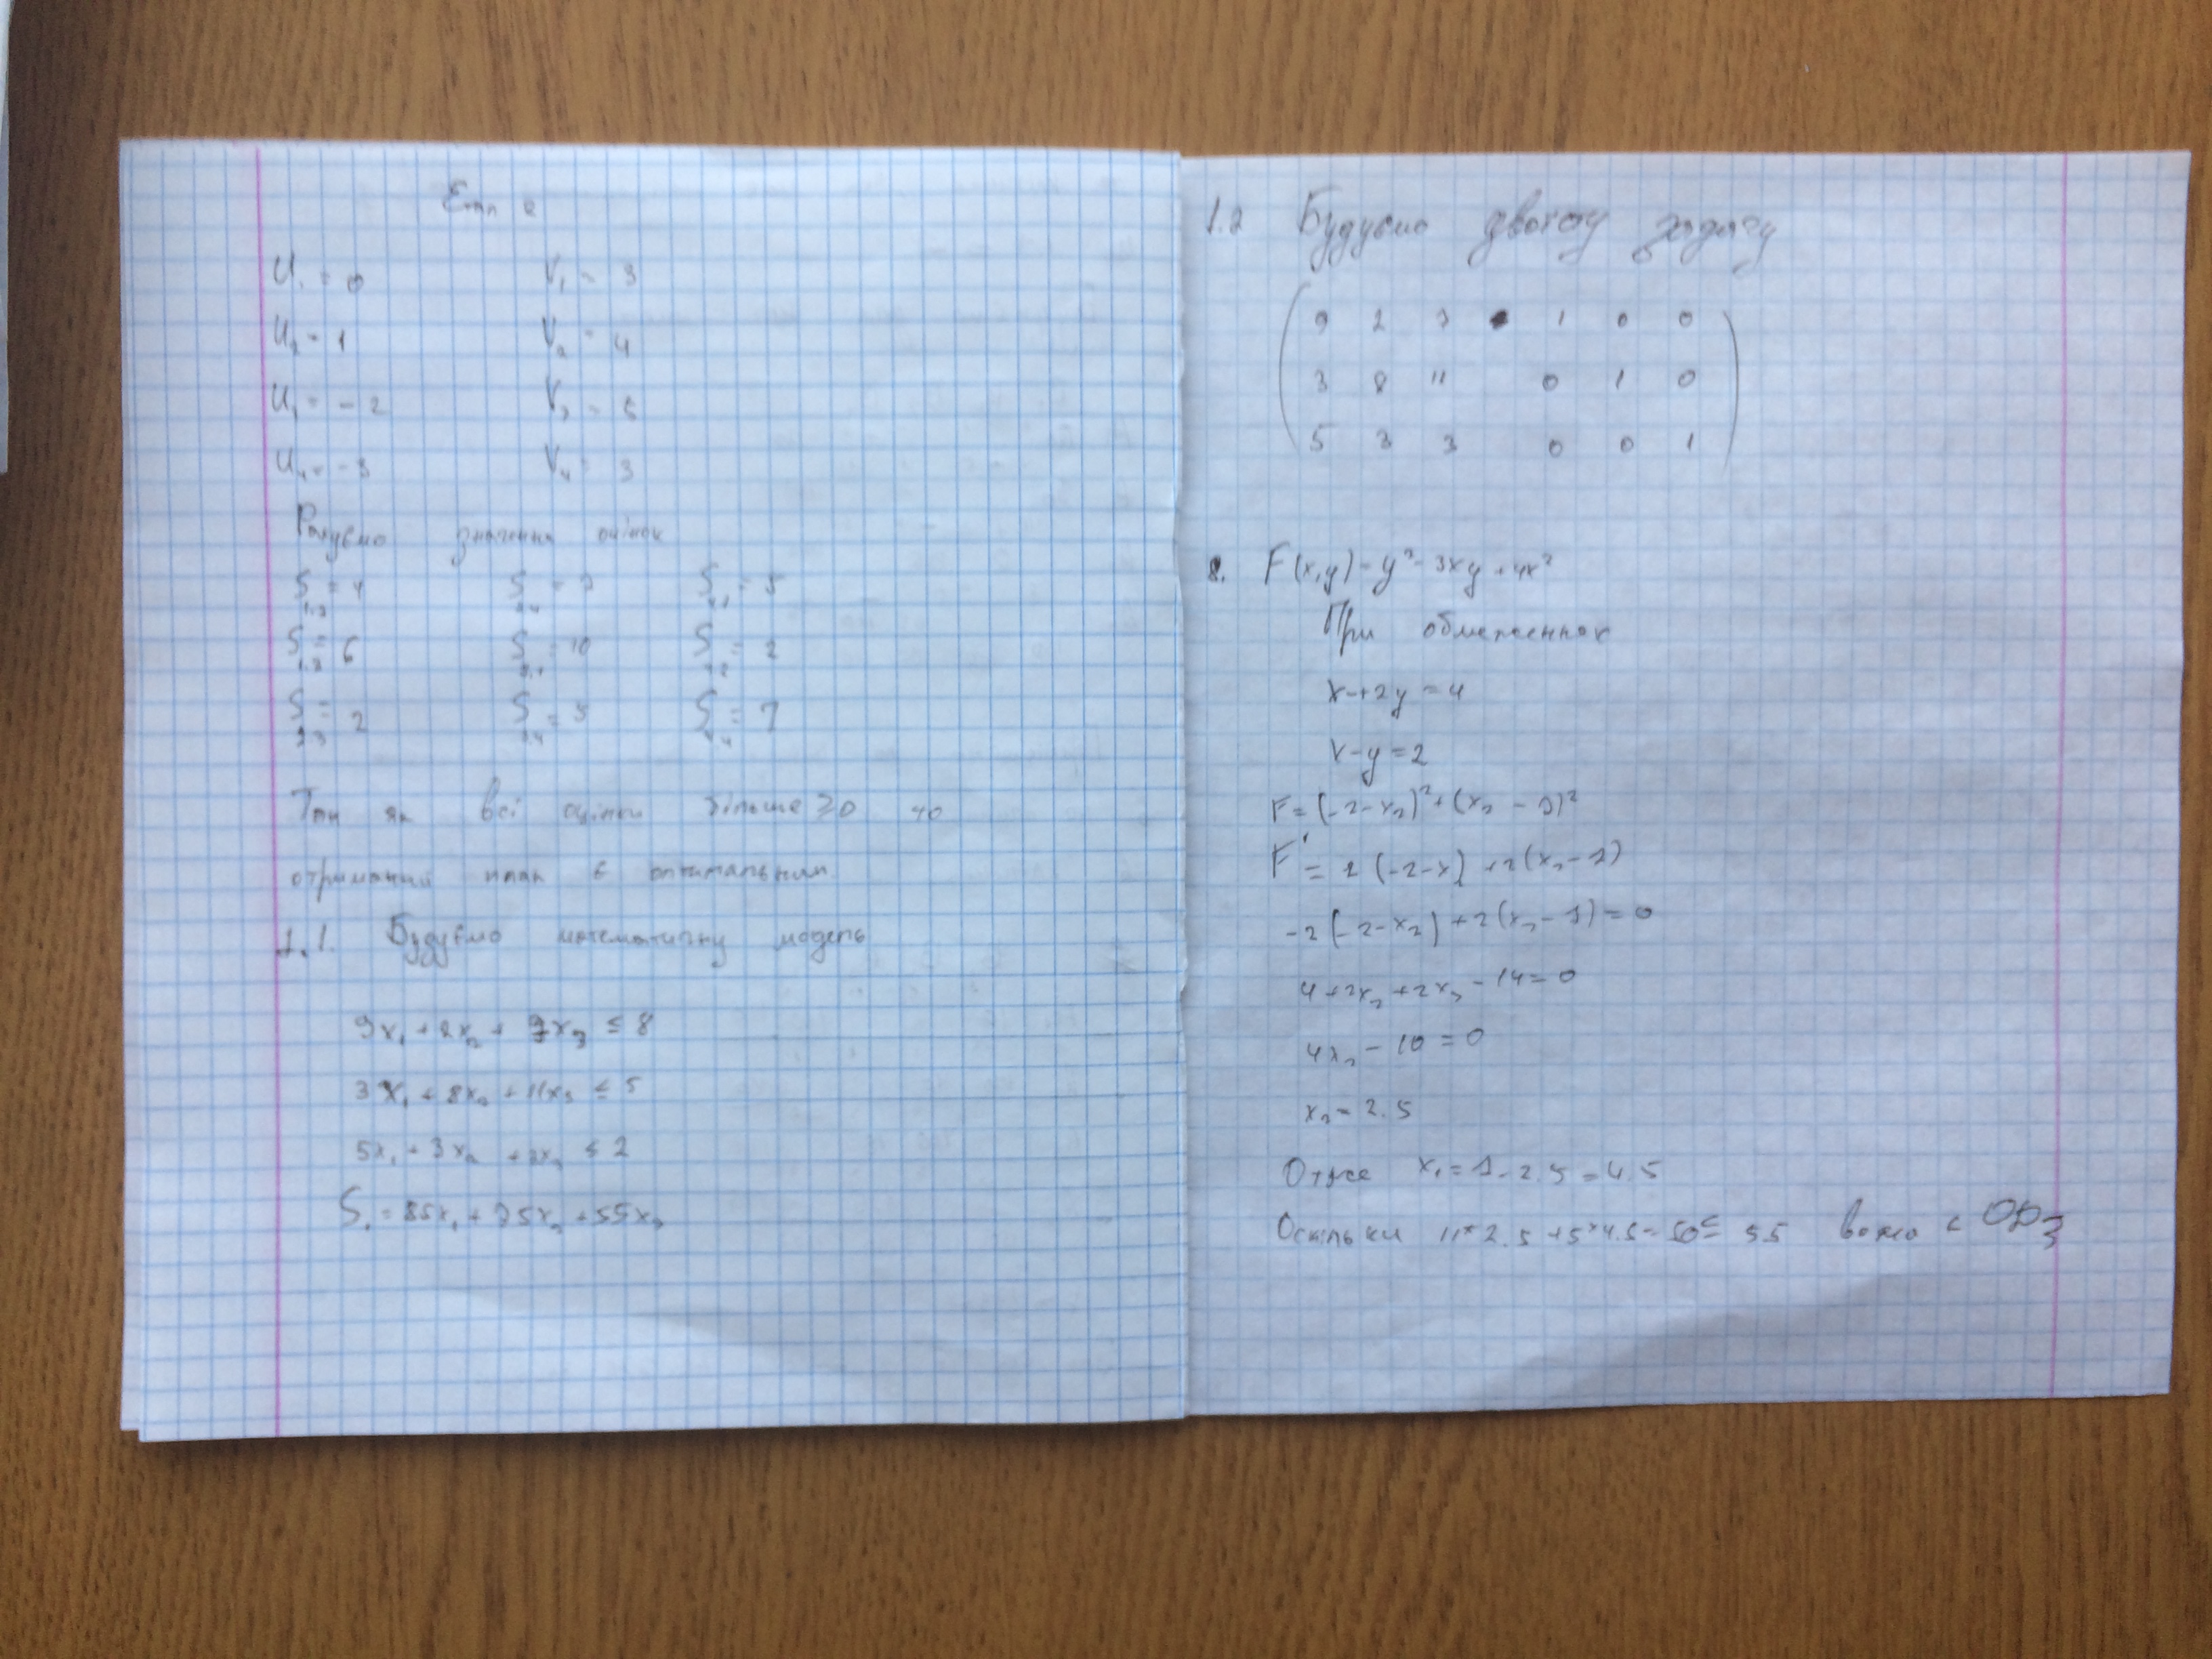 Етап 2
U₁ = 0 V₁ = 3
U₂ = 1 V₂ = 4
U₃ = -2 V₃ = 5
U₄ = -3 V₄ = 3
Рахуємо значення оцінок
S = 4 S = 7 S = 5
S = 6 S = 10 S = 2
S = 2 S = 5 S = 7
Так як всі оцінки більше ≥ 0 то
отриманий план є оптимальним
1.1. Будуємо математичну модель
9x₁ + 2x₂ + 7x₃ ≤ 8
3x₁ + 8x₂ + 11x₃ ≤ 5
5x₁ + 3x₂ + 3x₃ ≤ 2
S. = 85x₁ + 75x₂ + 55x₃
1.2 Будуємо двоїсту задачу
9 2 7 1 0 0
3 8 11 0 1 0
5 3 3 0 0 1
8. F(x,y) = y² - 3xy + 4x²
При обмеженнях
x + 2y = 4
x - y = 2
F = (-2-x₂)² + (x₂ - 7)²
F' = 2(-2-x) + 2(x₂-7)
-2(-2-x₂) + 2(x₂-7) = 0
4 + 2x₂ + 2x₂ - 14 = 0
4x₂ - 10 = 0
x₂ = 2.5
Отже x₁ = 7 - 2.5 = 4.5
Оскільки 11*2.5 + 5*4.5 = 50 ≤ 55 є ОДЗ